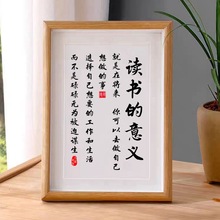 读书的意义
就是在将来 你可以去做自己
想做的事
选择自己想要的工作和生活
而不是碌碌无为被迫谋生